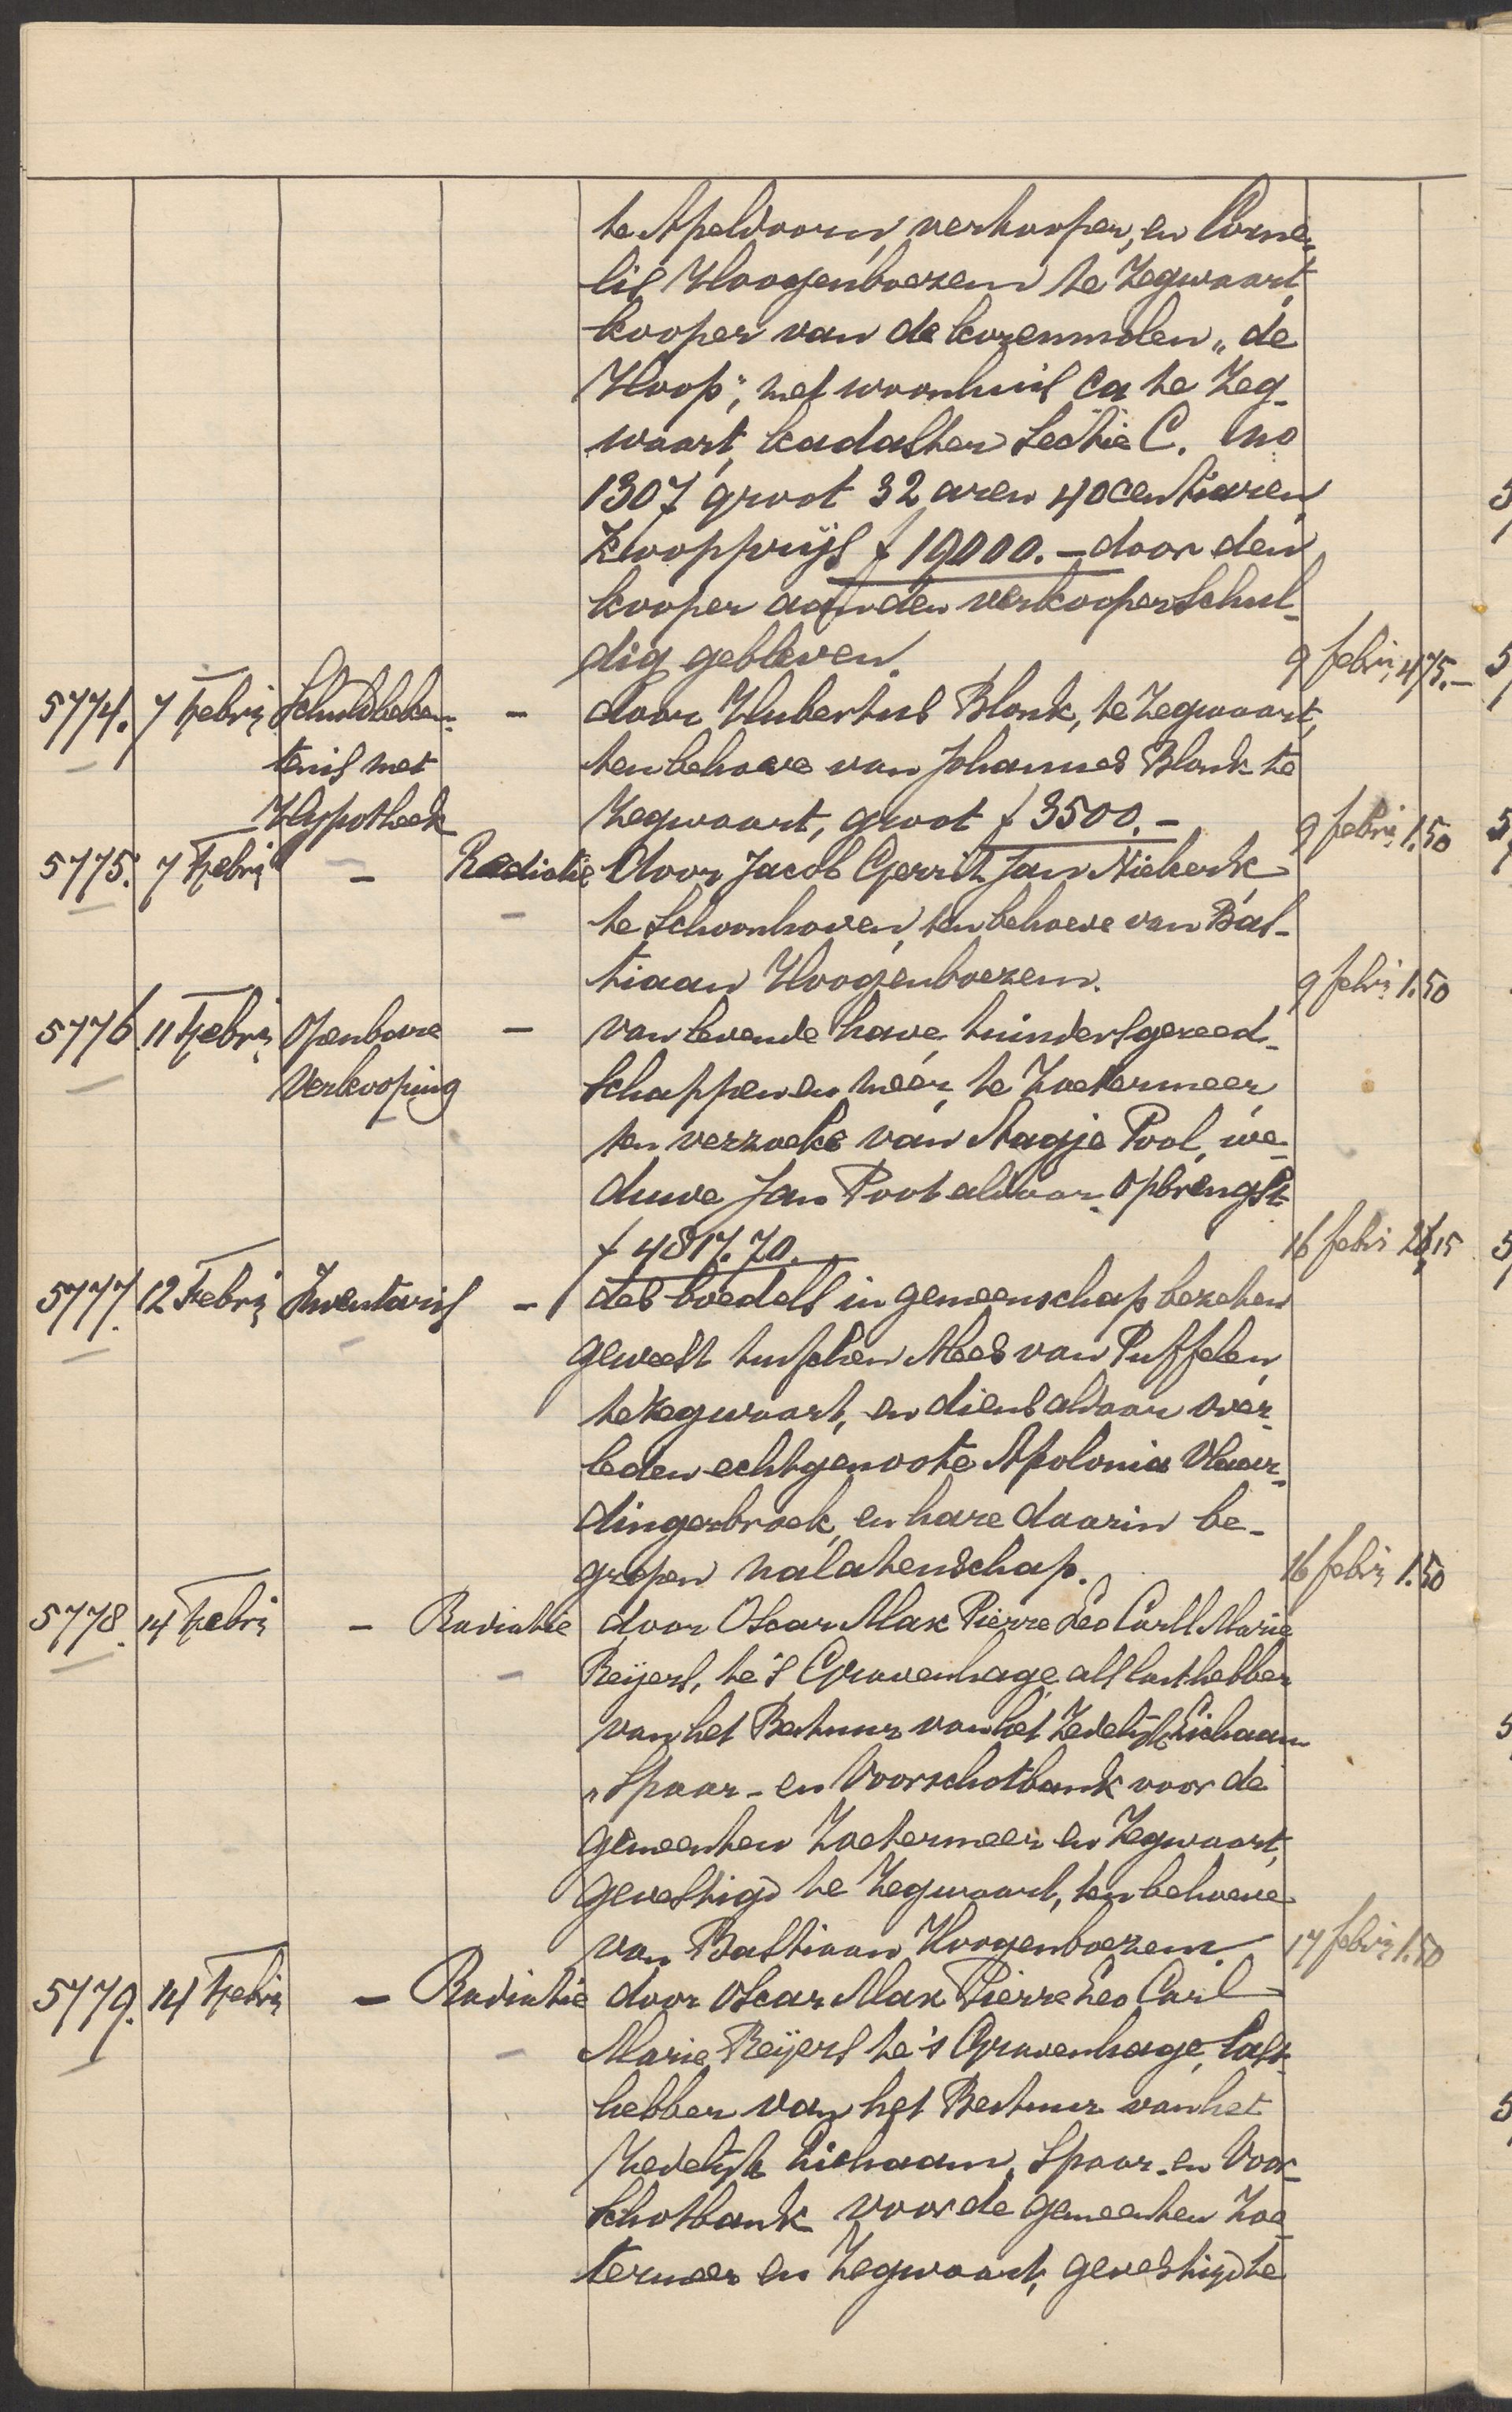 te Apeldoorn, verkooper, en Corne-
lis Hoogenboezem te Zegwaart,
kooper van de korenmolen „de
Hoop”, met woonhuis ca te Zeg-
waart, kadaster Sectie C. no
1307 groot 32 aren 40 centiaren,
Koopprijs f 19000.- door den
kooper aan den verkooper schul-
dig gebleven. 9 febri 475.-
5774. 7 Febri Schuldbeken- - door Hubertus Blonk, te Zegwaart,
tenis met ten behoeve van Johannes Blonk te
Hypotheek Zegwaart, groot f 3500.- 9 febri 1.50
5775. 7 Febri - Radiatie door Jacob Gerrit Jan Niekerk
te Schoonhoven, ten behoeve van Bas-
tiaan Hoogenboezem. 9 febri 1.50
5776 11 Febri Openbare - van levende have, tuindersgereed-
Verkooping schappen en meer, te Zoetermeer,
ten verzoeke van Aagje Pool, we-
duwe Jan Poot aldaar. Opbrengst
f 4817.70. 16 febri 26,15
5777. 12 Febri Inventaris - des boedels in gemeenschap bezeten
geweest tusschen Mees van Puffelen,
te Zegwaart, en diens aldaar over-
leden echtgenoote Apolonia Vlaar-
dingerbroek, en hare daarin be-
grepen nalatenschap. 16 febri 1.50
5778. 14 Febri - Radiatie door Oscar Max Pierre Leo Carll Marie
Reijers, te 's Gravenhage, als lasthebber
van het Bestuur van het Zedelijk Lichaam
„Spaar- en Voorschotbank voor de
gemeenten Zoetermeer en Zegwaart,
gevestigd te Zegwaart, ten behoeve
van Bastiaan Hoogenboezem. 17 febri 1.50
5779. 14 Febri - Radiatie door Oscar Max Pierre Leo Carl
Marie Reijers te 's Gravenhage, last-
hebber van het Bestuur van het
Zedelijk Lichaam, Spaar- en Voor-
schotbank voor de gemeenten Zoe-
termeer en Zegwaart, gevestigd te